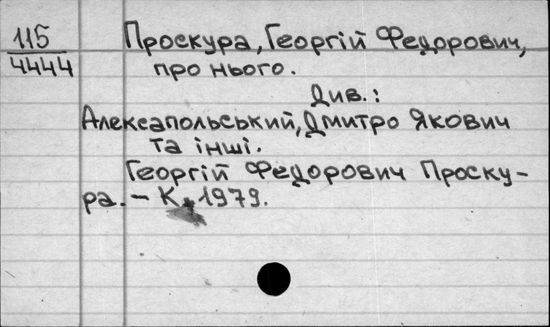 115
4444
Проскура, Георгій Федорович,
про нього.
Див.:
Алексапольський, Дмитро Якович
та інші.
Георгій Федорович Проску-
ра. – К., 1979.